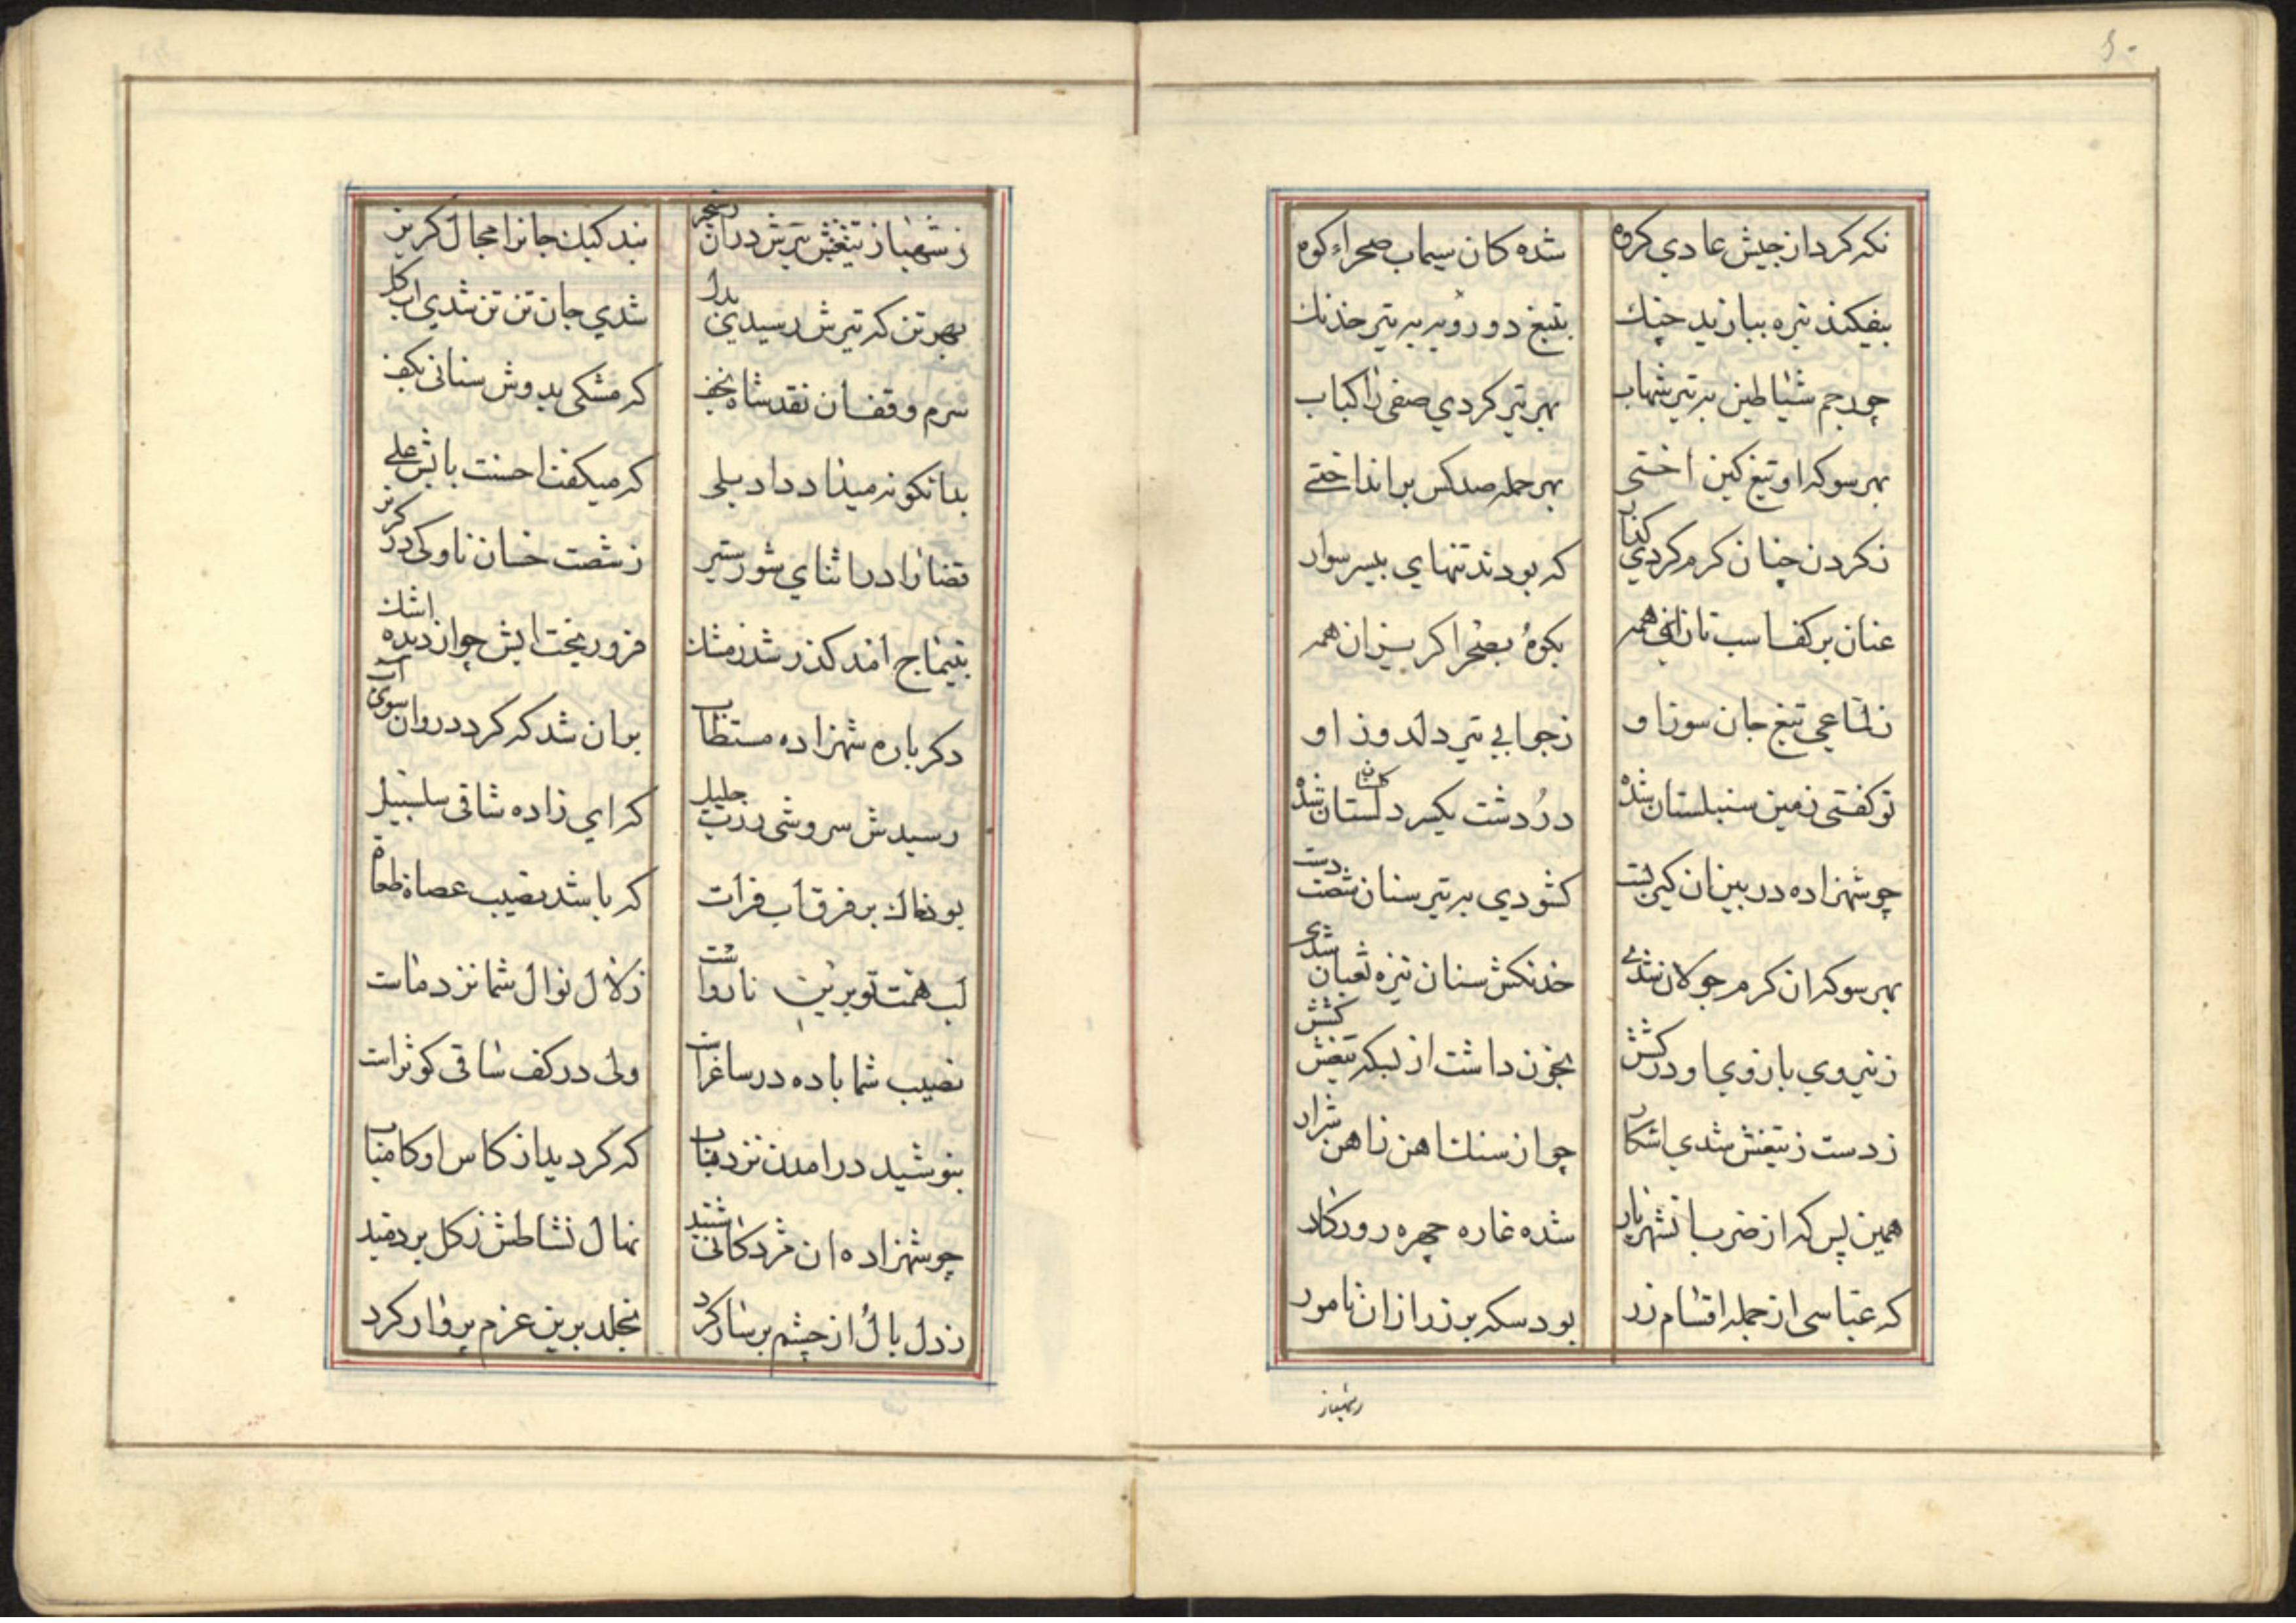 نکه کرد از جیش عادی کروه شده کان سیماب صحراء کوه
بیفکند نیزه بیازید چنك بتیغ دو رویه به تیر خدنك
چو رجم شیاطین به تیر شهاب بهر تیر کردی صفی را کباب
بهر سو که او تیغ کین اختی بهر حمله صد کس بر انداختی
ز کردن چنان کرم کردی کنار که بودند تنهای بیسر سوار
عنان بر کف اسب تازان همه بکوه بصحرا کریزان همه
ز لماعی تیغ جان سوز او ز جوابی تیر دلدوز او
تو کفتی زمین سنبلستان شده در و دشت یکسر دلستان شده
چو شهزاده در بین ان کین بست کشودی به تیر سنان شصت دست
بهر سو که ان کرم جولان شدی خدنکش سنان نیزه ثعبان شدی
ز نیروی بازوی او در کشش بخون داشت از بسکه تیغش کشش
ز دست ز تیغش شدی اشکار چو از سنك اهن ز اهن شرار
همین پس که از ضرب ان شهریار شده غازه چهره روزکار
که عباسی از جمله اقسام زر بود سکه بر زر از ان نامور
زشهباز
ز شهباز تیغش تیرش دران بند کبك جانرا مجال کریز
بهر تن که تیرش رسیدی شدی جان تن تن شدی اب کل
سرم وقف ان نقد شاه نجف که مشکی بدوش سنانی بکف
بدانکونه میداد داد یلی که میکفت احسنت بابش علی
قضا را در اثنای شور ستیز ز شصت خسان ناوکی در کریز
بتیماج امد کذر شد ز مشك فرو ریخت ابش چو از دیده اشك
دکر باره شهزاده مستطاب بران شد که کردد روان سوی اب
رسیدش سروشی ز رب جلیل که ای زاده ساقی سلسبیل
بود خاك بر فرق اب فرات که باشد نصیب عصاة طغاة
لب همت تو برین نارواست زلال نوال شما نزد ماست
نصیب شما باده در ساغر است ولی در کف ساقی کوثر است
بنوشید در امدن نزد باب که کردید از کاس او کامیاب
چو شهزاده ان مژدکانی شنید نهال نشاطش ز کل بر دمید
ز دل بال از چشم پر ساز کرد بخلد برین عزم پرواز کرد